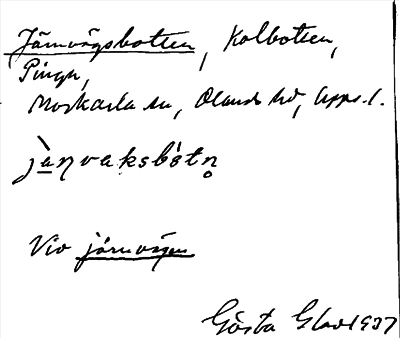 Järnvägsbotten, Kolbotten,
Pingn,
Morkarla sn, Olands hd, Upps. l.
jà̱ŋvaksbòtn̥
Vid järnvägen
Gösta Glad 1937